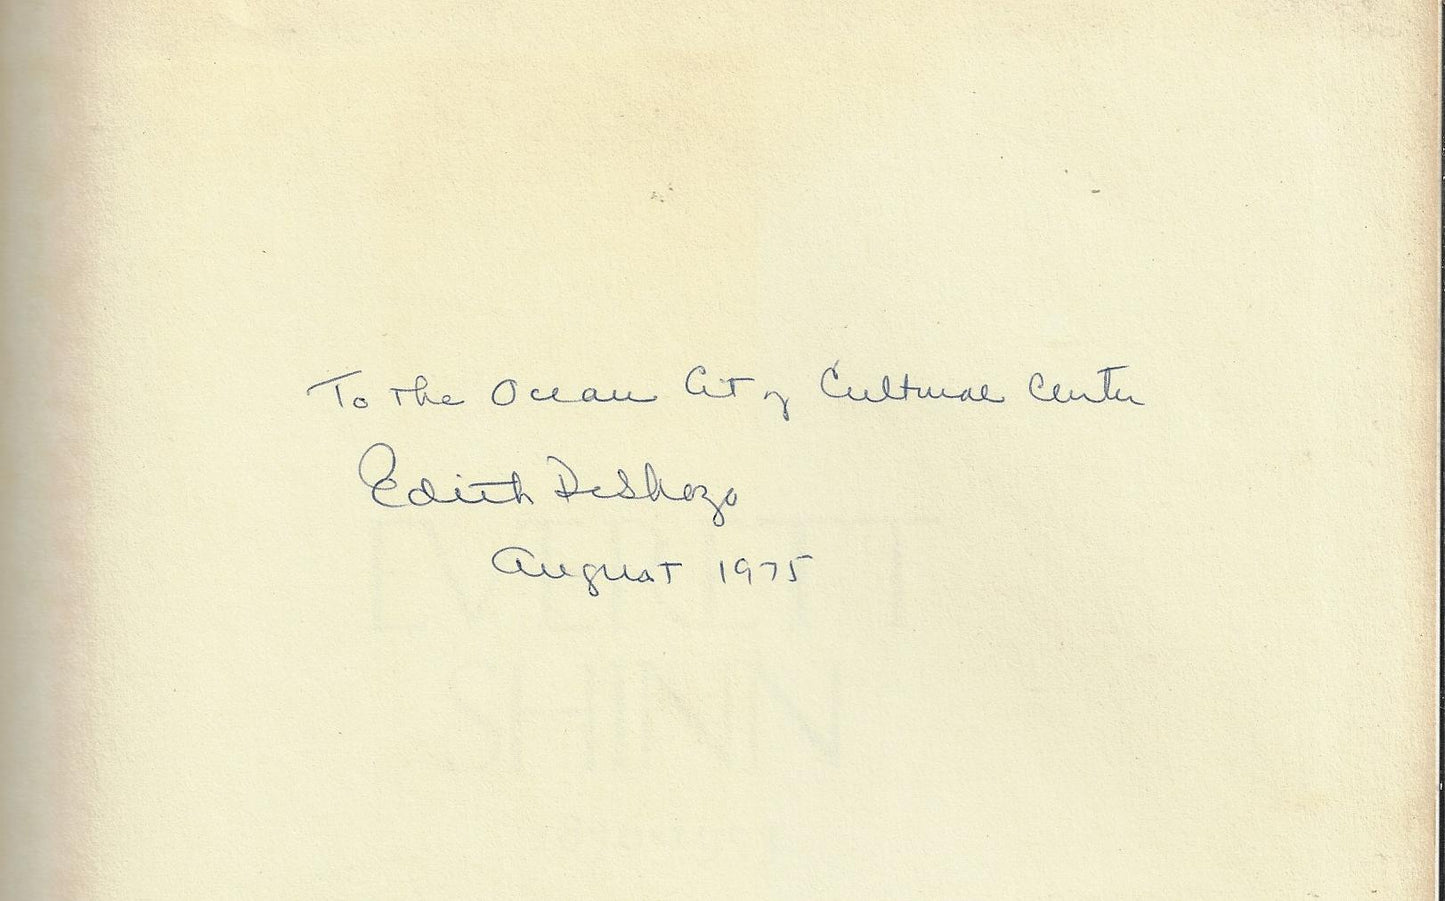 To the Ocean City Cultural Center
Edith DeShazo
August 1975